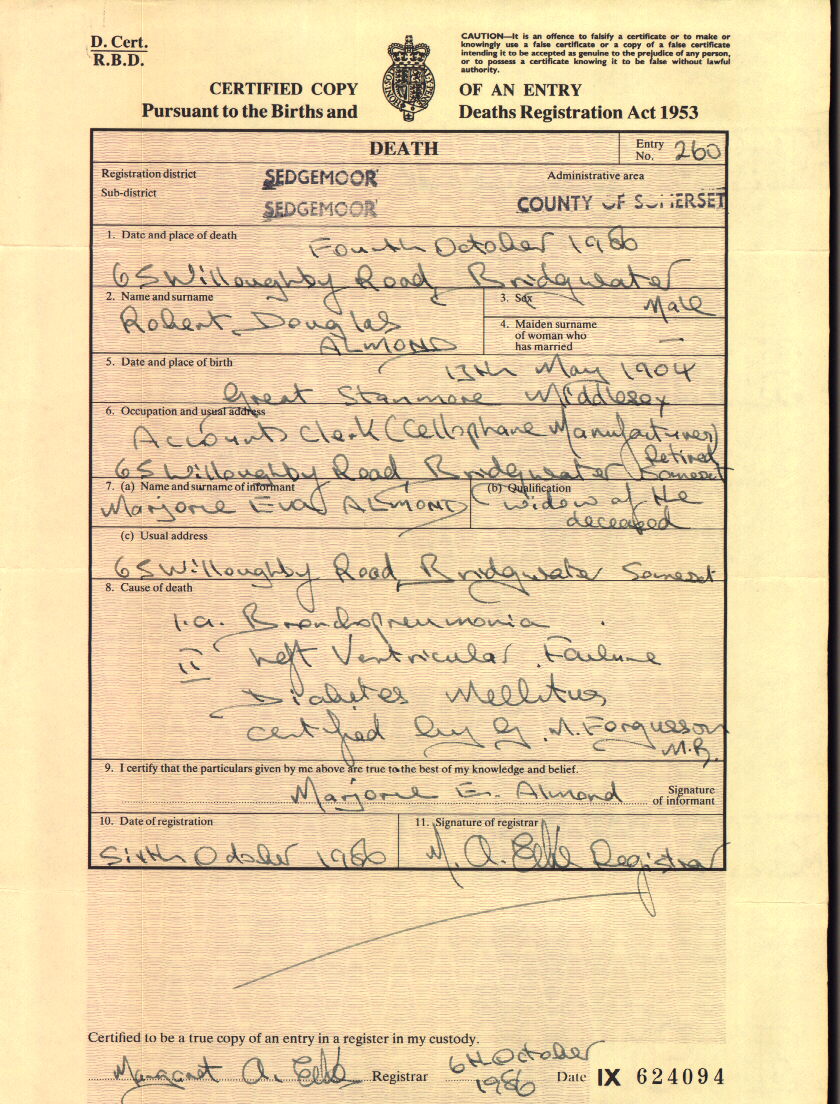 D. Cert.
R.B.D.
CAUTION—It is an offence to falsify a certificate or to make or
knowingly use a false certificate or a copy of a false certificate
intending it to be accepted as genuine to the prejudice of any person,
or to possess a certificate knowing it to be false without lawful
authority.
CERTIFIED COPY OF AN ENTRY
Pursuant to the Births and Deaths Registration Act 1953
DEATH
Entry No. 260
Registration district SEDGEMOOR Administrative area
Sub-district SEDGEMOOR COUNTY OF SOMERSET
1. Date and place of death
Fourth October 1986
65 Willoughby Road, Bridgwater
2. Name and surname
Robert Douglas
ALMOND
3. Sex
Male
4. Maiden surname
of woman who
has married —
5. Date and place of birth
13th May 1904
Great Stanmore Middlesex
6. Occupation and usual address
Accounts Clerk (Cellophane Manufacturers)
Retired
65 Willoughby Road, Bridgwater Somerset
7. (a) Name and surname of informant
Marjorie Eva ALMOND
(b) Qualification
Widow of the
deceased
(c) Usual address
65 Willoughby Road, Bridgwater Somerset
8. Cause of death
1.a. Bronchopneumonia
II Left Ventricular Failure
Diabetes Mellitus
Certified by G. M. Fergusson
M.B.
9. I certify that the particulars given by me above are true to the best of my knowledge and belief.
Marjorie E. Almond Signature
of informant
10. Date of registration
Sixth October 1986
11. Signature of registrar
M. A. Registrar
Certified to be a true copy of an entry in a register in my custody.
Margaret A. Registrar 6th October
1986 Date IX 624094